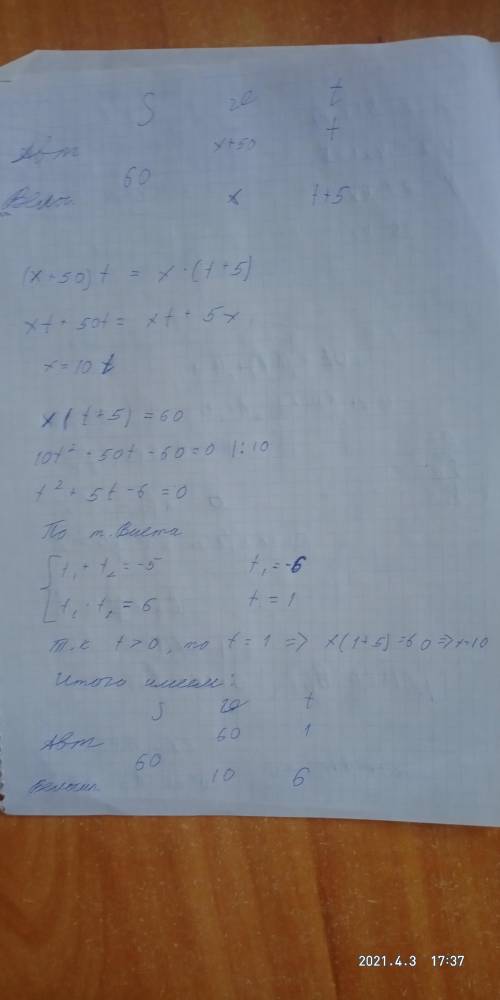 S v t
Авт x+50 t
60
Вело x t+5
(x+50)t = x·(t+5)
xt+50t = xt+5x
x=10t
x(t+5)=60
10t²+50t-60=0 |:10
t²+5t-6=0
По т. Виета
t₁+t₂=-5 t₁=-6
t₁·t₂=6 t=1
т.к t>0, то t=1 => x(1+5)=60=>x=10
Итого имеем:
S v t
Авт 60 1
60
10 6
2021.4.3 17:37